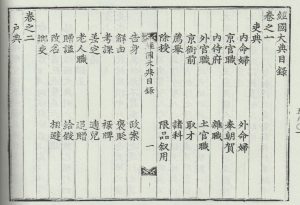 經國大典目錄
卷之一
吏典
內命婦 外命婦
京官職 奉朝賀
內侍府 雜職
外官職 土官職
京衙前 取才
薦擧 諸科
除授 限品敍用
經國大典目錄 一
告身 政案
解由 褒貶
考課 祿牌
差定 遞兒
老人職 追贈
贈諡 給假
改名 相避
鄕吏
卷之二
戶典